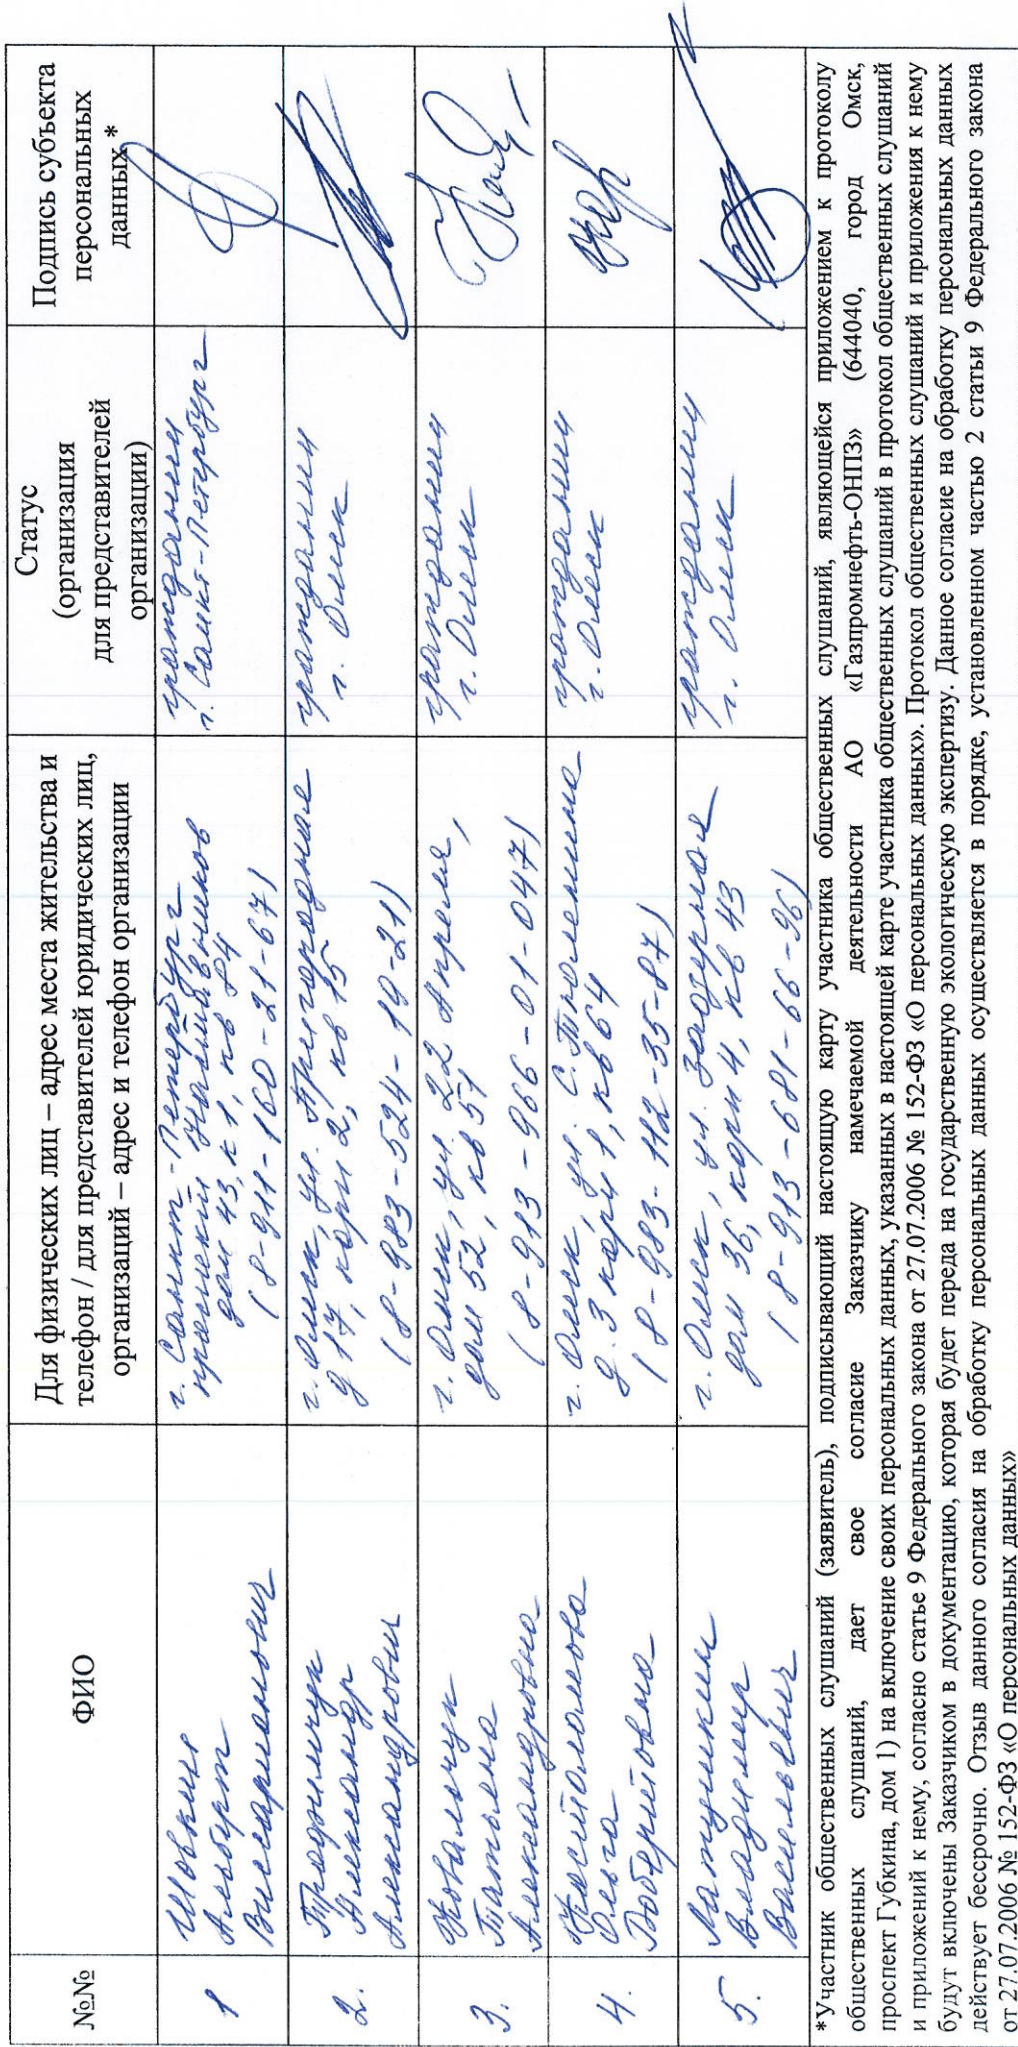 №№
ФИО
Для физических лиц – адрес места жительства и
телефон / для представителей юридических лиц,
организаций – адрес и телефон организации
Статус
(организация
для представителей
организации)
Подпись субъекта
персональных
данных *
1
Шовкин
Альберт
Виссарионович
г. Санкт-Петербург
проспект Наставников
дом 43, к 1, кв 84
(8-911-160-21-67)
гражданин
г. Санкт-Петербург
2.
Александр
Александрович
г. Омск, ул. Пригородная
д 17, корп 2, кв 15
(8-983-524-19-21)
гражданин
г. Омск
3.
Ковальчук
Татьяна
Александровна
г. Омск, ул. 22 Апреля,
дом 52, кв 51
(8-913-966-01-047)
гражданин
г. Омск
4.
Ольга
Робертовна
г. Омск, ул. С. Тюленина
д. 3 корп 1, кв 64
(8-983-112-35-87)
гражданин
г. Омск
5.
Латушкин
Владимир
Васильевич
г. Омск, ул. Заозерная
дом 36, корп 4, кв 43
(8-913-681-66-96)
гражданин
г. Омск
*Участник общественных слушаний (заявитель), подписывающий настоящую карту участника общественных слушаний, являющейся приложением к протоколу
общественных слушаний, дает свое согласие Заказчику намечаемой деятельности АО «Газпромнефть-ОНПЗ» (644040, город Омск,
проспект Губкина, дом 1) на включение своих персональных данных, указанных в настоящей карте участника общественных слушаний в протокол общественных слушаний
и приложений к нему, согласно статье 9 Федерального закона от 27.07.2006 № 152-ФЗ «О персональных данных». Протокол общественных слушаний и приложения к нему
будут включены Заказчиком в документацию, которая будет переда на государственную экологическую экспертизу. Данное согласие на обработку персональных данных
действует бессрочно. Отзыв данного согласия на обработку персональных данных осуществляется в порядке, установленном частью 2 статьи 9 Федерального закона
от 27.07.2006 № 152-ФЗ «О персональных данных»